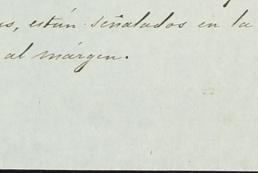 están señalados en la
al márgen.